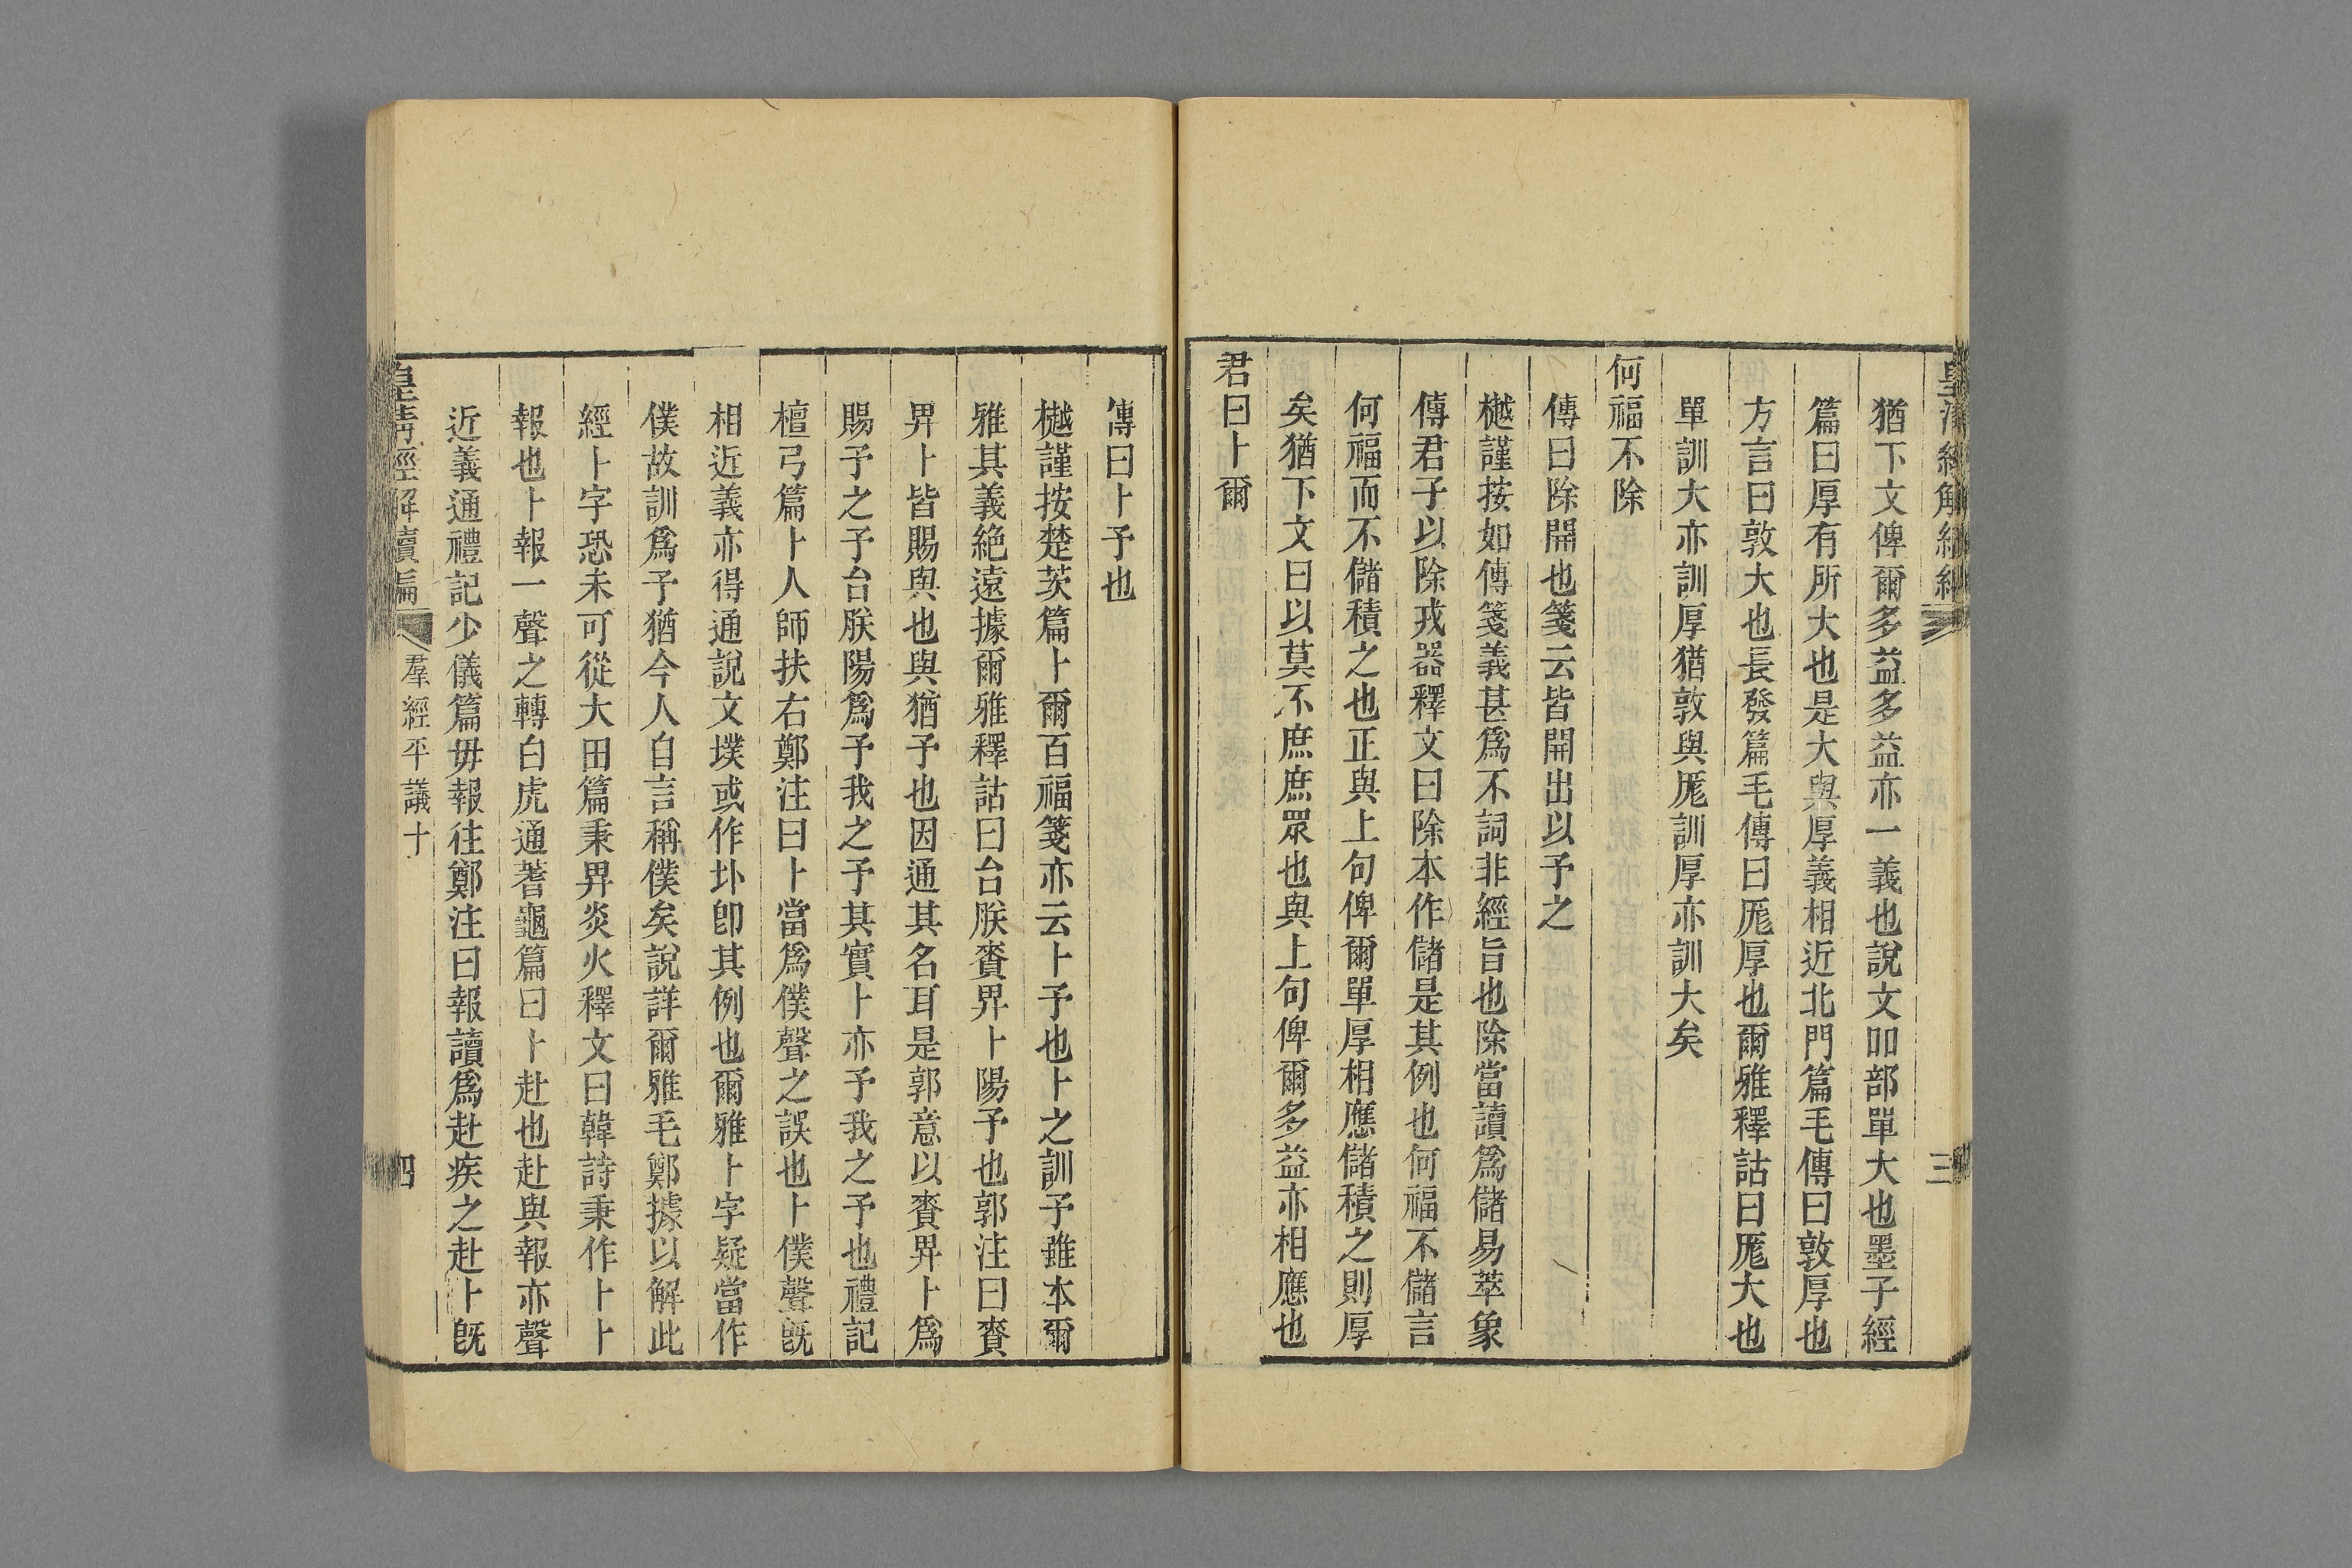 猶下文俾爾多益多益亦一義也說文吅部單大也墨子經
篇曰厚有所大也是大與厚義相近北門篇毛傳曰敦厚也
方言曰敦大也長發篇毛傳曰厖厚也爾雅釋詁曰厖大也
單訓大亦訓厚猶敦與厖訓厚亦訓大矣
何福不除
傳曰除開也箋云皆開出以予之
樾謹按如傳箋義甚爲不詞非經旨也除當讀爲儲易萃象
傳君子以除戎器釋文曰除本作儲是其例也何福不儲言
何福而不儲積之也正與上句俾爾單厚相應儲積之則厚
矣猶下文曰以莫不庶庶眾也與上句俾爾多益亦相應也
君曰卜爾
傳曰卜予也
樾謹按楚茨篇卜爾百福箋亦云卜予也卜之訓予雖本爾
雅其義絶遠據爾雅釋詁曰台朕賚畀卜陽予也郭注曰賚
畀卜皆賜與也與猶予也因通其名耳是郭意以賚畀卜爲
賜予之予台朕陽爲予我之予其實卜亦予我之予也禮記
檀弓篇卜人師扶右鄭注曰卜當爲僕聲之誤也卜僕聲旣
相近義亦得通說文墣或作圤卽其例也爾雅卜字疑當作
僕故訓爲予猶今人自言稱僕矣說詳爾雅毛鄭據以解此
經卜字恐未可從大田篇秉畀炎火釋文曰韓詩秉作卜卜
報也卜報一聲之轉白虎通蓍龜篇曰卜赴也赴與報亦聲
近義通禮記少儀篇毋報往鄭注曰報讀爲赴疾之赴卜旣
皇淸經解續編
羣經平議十
四